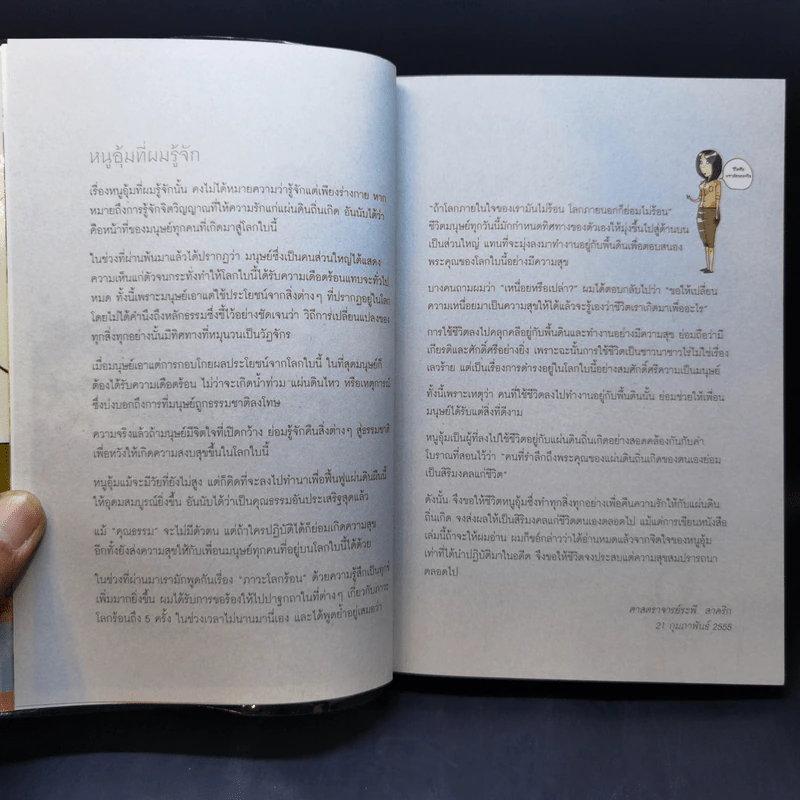 หนูอุ้มที่ผมรู้จัก
เรื่องหนูอุ้มที่ผมรู้จักนั้น คงไม่ได้หมายความว่ารู้จักแต่เพียงร่างกาย หาก
หมายถึงการรู้จักจิตวิญญาณที่ให้ความรักแก่แผ่นดินถิ่นเกิด อันนับได้ว่า
คือหน้าที่ของมนุษย์ทุกคนที่เกิดมาสู่โลกใบนี้
ในช่วงที่ผ่านพ้นมาแล้วได้ปรากฏว่า มนุษย์ซึ่งเป็นคนส่วนใหญ่ได้แสดง
ความเห็นแก่ตัวจนกระทั่งทำให้โลกใบนี้ได้รับความเดือดร้อนแทบจะทั่วไป
หมด ทั้งนี้เพราะมนุษย์เอาแต่ใช้ประโยชน์จากสิ่งต่างๆ ที่ปรากฏอยู่ในโลก
โดยไม่ได้คำนึงถึงหลักธรรมซึ่งชี้ไว้อย่างชัดเจนว่า วิถีการเปลี่ยนแปลงของ
ทุกสิ่งทุกอย่างนั้นมีทิศทางที่หมุนวนเป็นวัฏจักร
เมื่อมนุษย์เอาแต่การกอบโกยผลประโยชน์จากโลกใบนี้ ในที่สุดมนุษย์ก็
ต้องได้รับความเดือดร้อน ไม่ว่าจะเกิดน้ำท่วม แผ่นดินไหว หรือเหตุการณ์
ซึ่งบ่งบอกถึงการที่มนุษย์ถูกธรรมชาติลงโทษ
ความจริงแล้วถ้ามนุษย์มีจิตใจที่เปิดกว้าง ย่อมรู้จักคืนสิ่งต่างๆ สู่ธรรมชาติ
เพื่อหวังให้เกิดความสงบสุขขึ้นในโลกใบนี้
หนูอุ้มแม้จะมีวัยที่ยังไม่สูง แต่ก็คิดที่จะลงไปทำนาเพื่อฟื้นฟูแผ่นดินผืนนี้
ให้อุดมสมบูรณ์ยิ่งขึ้น อันนับได้ว่าเป็นคุณธรรมอันประเสริฐสุดแล้ว
แม้ "คุณธรรม" จะไม่มีตัวตน แต่ถ้าใครปฏิบัติได้ก็ย่อมเกิดความสุข
อีกทั้งยังส่งความสุขให้กับเพื่อนมนุษย์ทุกคนที่อยู่บนโลกใบนี้ได้ด้วย
ในช่วงที่ผ่านมาเรามักพูดกันเรื่อง "ภาวะโลกร้อน" ด้วยความรู้สึกเป็นทุกข์
เพิ่มมากยิ่งขึ้น ผมได้รับการขอร้องให้ไปปาฐกถาในที่ต่างๆ เกี่ยวกับภาวะ
โลกร้อนถึง 5 ครั้ง ในช่วงเวลาไม่นานมานี้เอง และได้พูดย้ำอยู่เสมอว่า
"ถ้าโลกภายในใจของเรามันไม่ร้อน โลกภายนอกก็ย่อมไม่ร้อน"
ชีวิตมนุษย์ทุกวันนี้มักกำหนดทิศทางของตัวเองให้มุ่งขึ้นไปสู่ด้านบน
เป็นส่วนใหญ่ แทนที่จะมุ่งลงมาทำงานอยู่กับพื้นดินเพื่อตอบสนอง
พระคุณของโลกใบนี้อย่างมีความสุข
บางคนถามผมว่า "เหนื่อยหรือเปล่า?" ผมได้ตอบกลับไปว่า "ขอให้เปลี่ยน
ความเหนื่อยมาเป็นความสุขให้ได้แล้วจะรู้เองว่าชีวิตเราเกิดมาเพื่ออะไร"
การใช้ชีวิตลงไปคลุกคลีอยู่กับพื้นดินและทำงานอย่างมีความสุข ย่อมถือว่ามี
เกียรติและศักดิ์ศรีอย่างยิ่ง เพราะฉะนั้นการใช้ชีวิตเป็นชาวนาชาวไร่ไม่ใช่เรื่อง
เลวร้าย แต่เป็นเรื่องการดำรงอยู่ในโลกใบนี้อย่างสมศักดิ์ศรีความเป็นมนุษย์
ทั้งนี้เพราะเหตุว่า คนที่ใช้ชีวิตลงไปทำงานอยู่กับพื้นดินนั้น ย่อมช่วยให้เพื่อน
มนุษย์ได้รับแต่สิ่งที่ดีงาม
หนูอุ้มเป็นผู้ที่ลงไปใช้ชีวิตอยู่กับแผ่นดินถิ่นเกิดอย่างสอดคล้องกันกับคำ
โบราณที่สอนไว้ว่า "คนที่รำลึกถึงพระคุณของแผ่นดินถิ่นเกิดของตนเองย่อม
เป็นสิริมงคลแก่ชีวิต"
ดังนั้น จึงขอให้ชีวิตหนูอุ้มซึ่งทำทุกสิ่งทุกอย่างเพื่อคืนความรักให้กับแผ่นดิน
ถิ่นเกิด จงส่งผลให้เป็นสิริมงคลแก่ชีวิตตนเองตลอดไป แม้แต่การเขียนหนังสือ
เล่มนี้ถ้าจะให้ผมอ่าน ผมก็ขอกล่าวว่าได้อ่านหมดแล้วจากจิตใจของหนูอุ้ม
เท่าที่ได้นำปฏิบัติมาในอดีต จึงขอให้ชีวิตจงประสบแต่ความสุขสมปรารถนา
ตลอดไป
ศาสตราจารย์ระพี สาคริก
21 กุมภาพันธ์ 2555